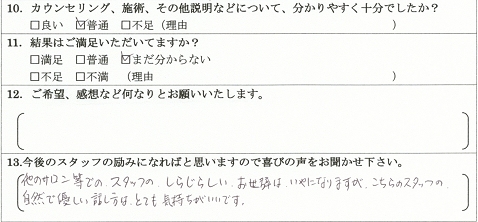 10. カウンセリング、施術、その他説明などについて、分かりやすく十分でしたか？
□良い ☑普通 □不足（理由 ）
11. 結果はご満足いただいてますか？
□満足 □普通 ☑まだ分からない
□不足 □不満 （理由 ）
12. ご希望、感想など何なりとお願いいたします。
13.今後のスタッフの励みになればと思いますので喜びの声をお聞かせ下さい。
他のサロン等での、スタッフの、しらじらしい、お世辞は、いやになりますが、こちらのスタッフの、
自然で優しい話し方は、とても気持ちがいいです。